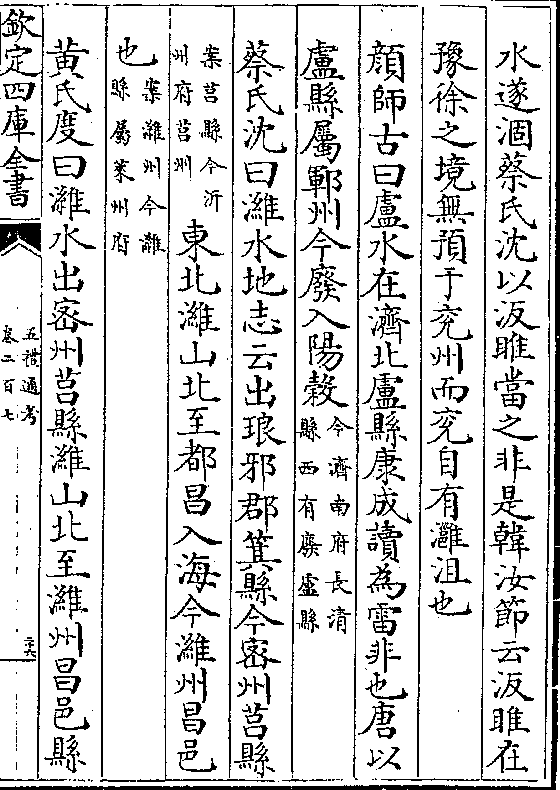 水遂涸蔡氏沈以汳睢當之非是韓汝節云汳睢在
豫徐之境無預于兖州而兖自有灉沮也
顔師古曰盧水在濟北盧縣康成讀為雷非也唐以
盧縣屬鄆州今廢入陽糓今濟南府長清縣西有廢盧縣
蔡氏沈曰濰水地志云出琅邪郡箕縣今密州莒縣
案莒縣今沂州府莒州東北濰山北至都昌入海今濰州昌邑
也案濰州今濰縣屬萊州府
黄氏度曰濰水出宻州莒縣濰山北至濰州昌邑縣
欽定四庫全書
五禮通考
卷二百七
二六